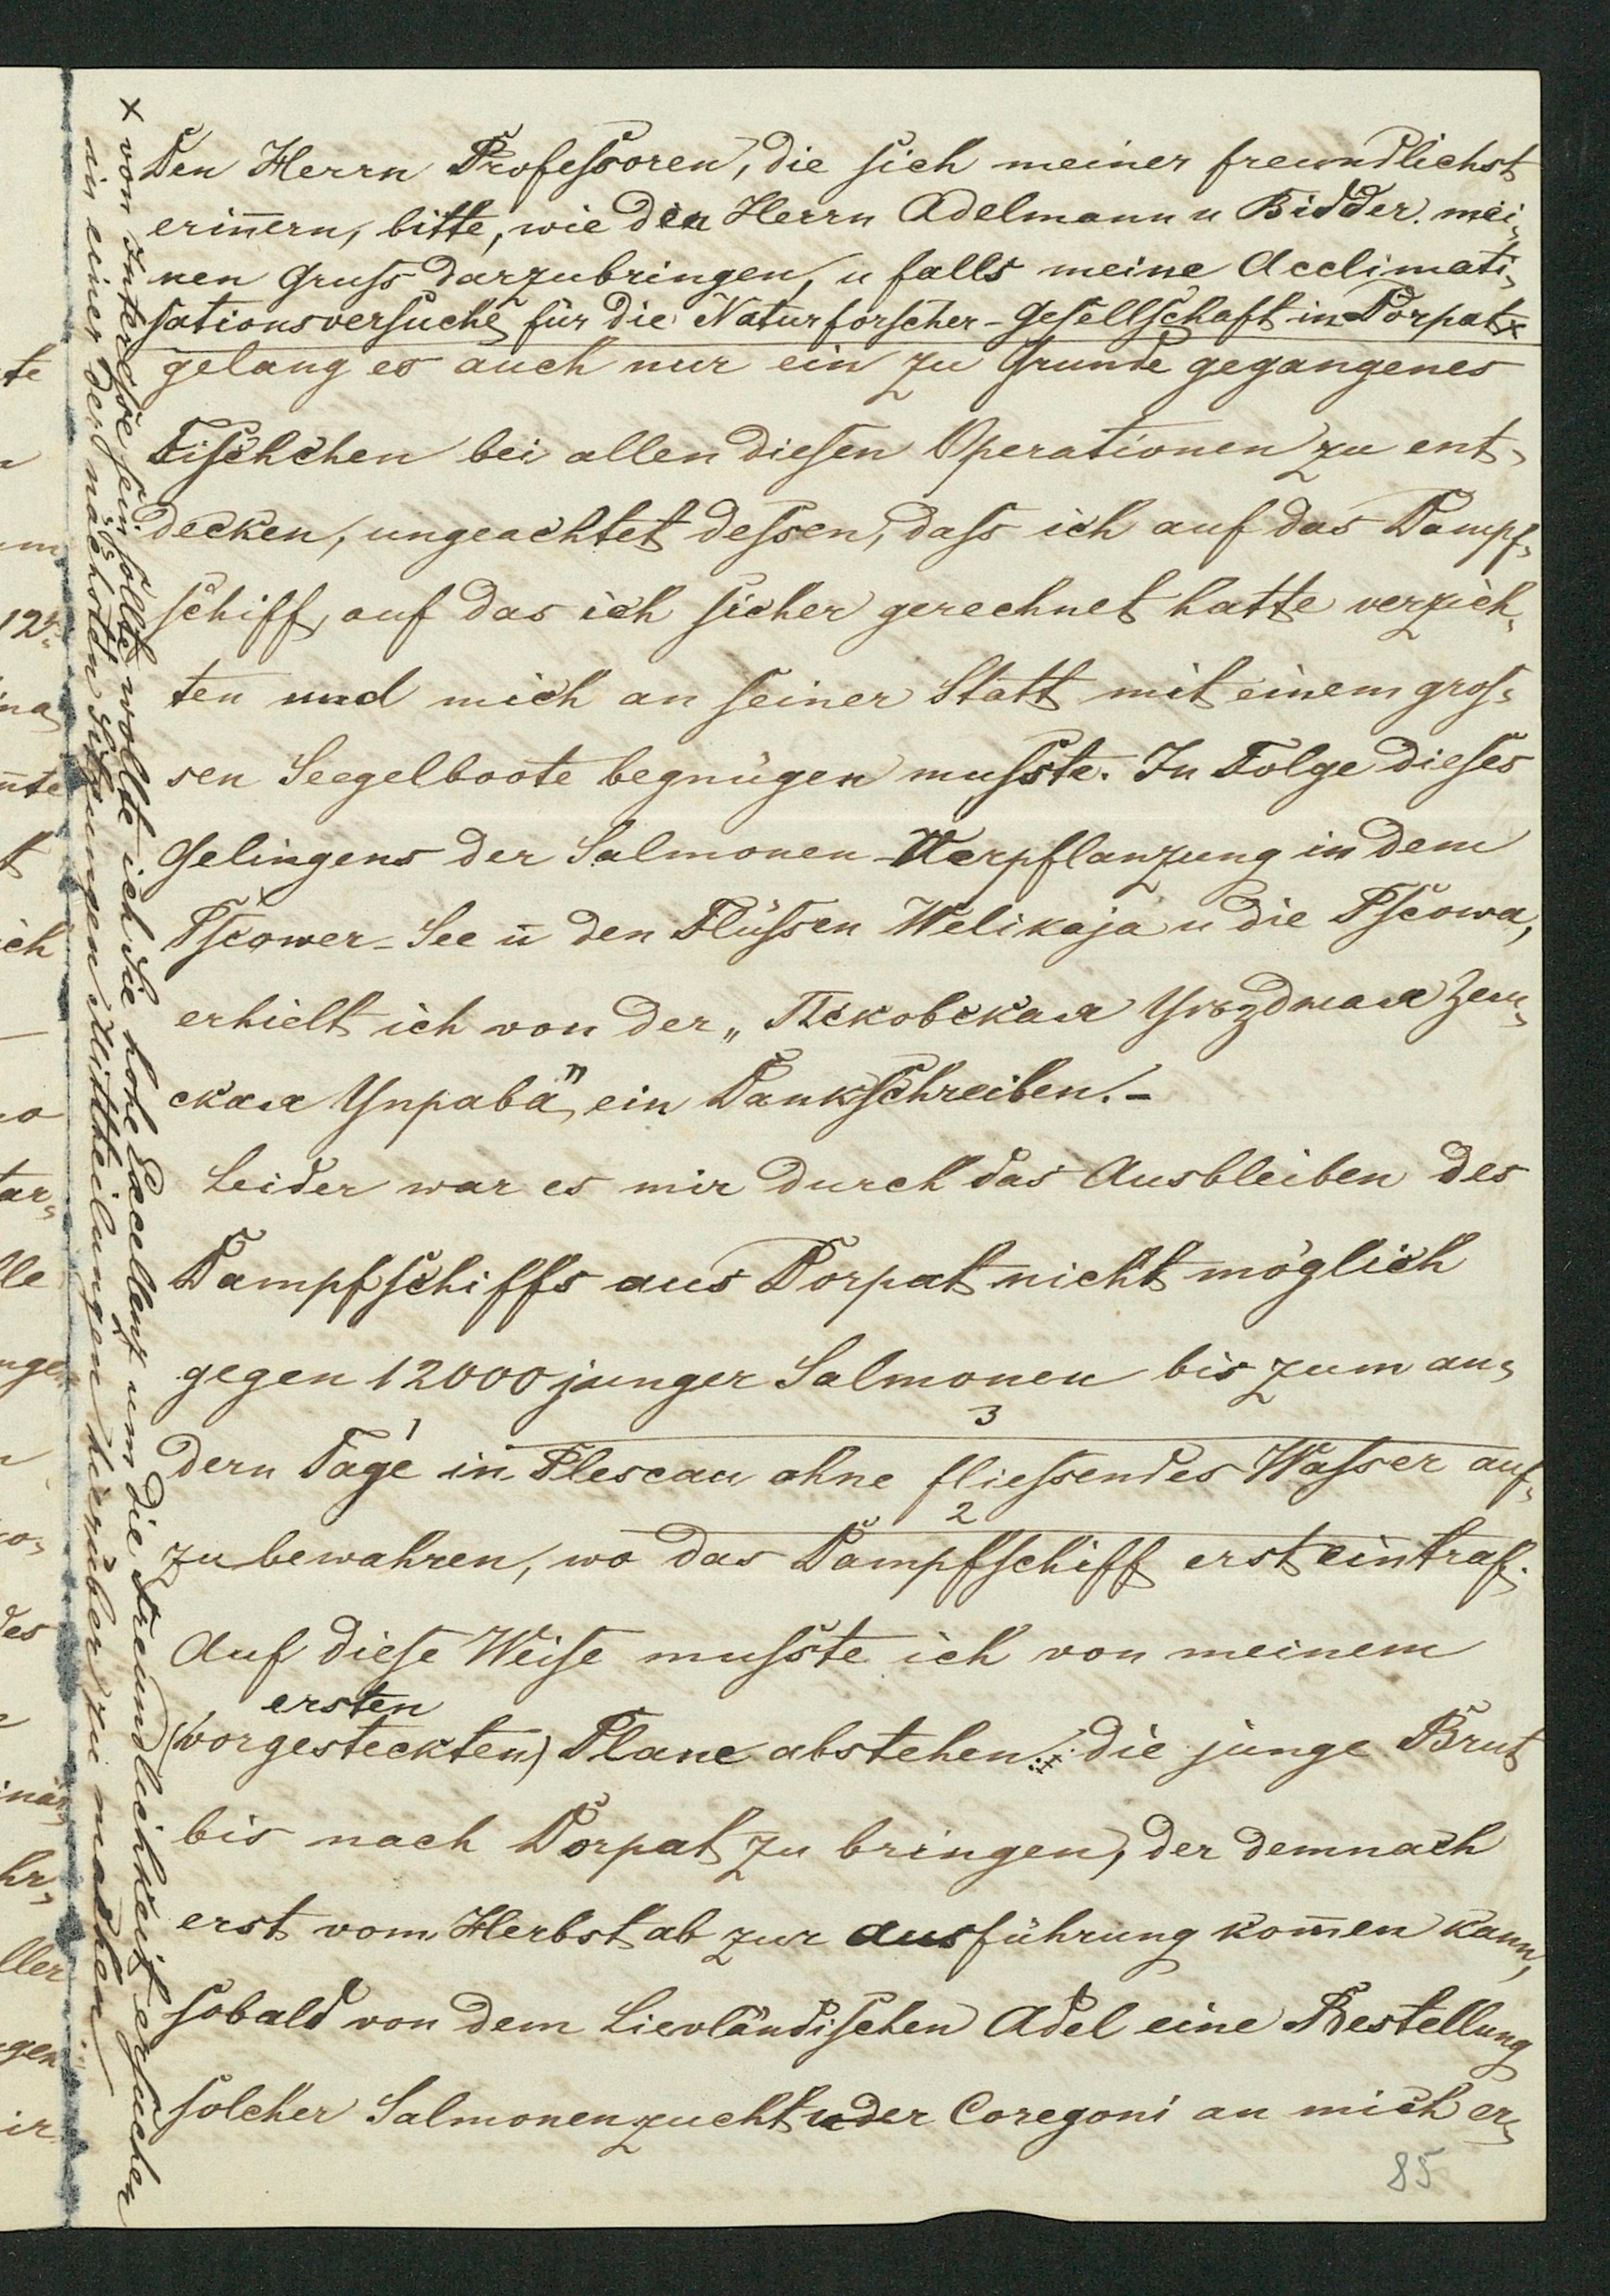 Den Herrn Professoren, die sich meiner freundlichst
erin̄ern, bitte, wie den Herrn Adelmann u Bidder. mei-
nen Gruss darzubringen, u falls meine Acclimati-
sationsversuche für die Naturforscher-Gesellschaft in Dorpat x
gelang es auch nur ein zu Grunde gegangenes
Fischchen bei allen diesen Operationen zu ent-
decken, ungeachtet dessen, dass ich auf das Dampf-
schiff, auf das ich sicher gerechnet hatte verzich-
ten und mich an seiner Statt mit einem gros-
sen Seegelboote begnügen musste. In Folge dieses
Gelingens der Salmonen-Verpflanzung in dem
Pscower-See ū den Flüssen Welikaja u die Pscowa,
erhielt ich von der „Псковская Уѣздная Зем-
ская Управа" ein Dankschreiben. -
Leider war es mir durch das Ausbleiben des
Dampfschiffs aus Dorpat nicht möglich
gegen 12000 junger Salmonen bis zum an-
3
dern Tage 1 in Plescau ohne fliessendes Wasser auf-
2
zubewahren, wo das Dampfschiff erst eintraf.
Auf diese Weise musste ich von meinem
ersten
(vorgesteckten) Plane abstehen: die junge Brut
bis nach Dorpat zu bringen, der demnach
erst vom Herbst ab zur Ausführung kom̄en kann,
sobald von dem Lievländischen Adel eine Bestellung
solcher Salmonenzucht u der Coregoni an mich er-
85
x von Interesse sein sollte, wollte ich Sie hohe Excellenz um die Freundlichkeit ersuchen
in einer der nächsten Sitzungen Mittheilungen hierüber zu machen.
te
12
ich
tar-
lle
des
hr-
ller
gen
ir